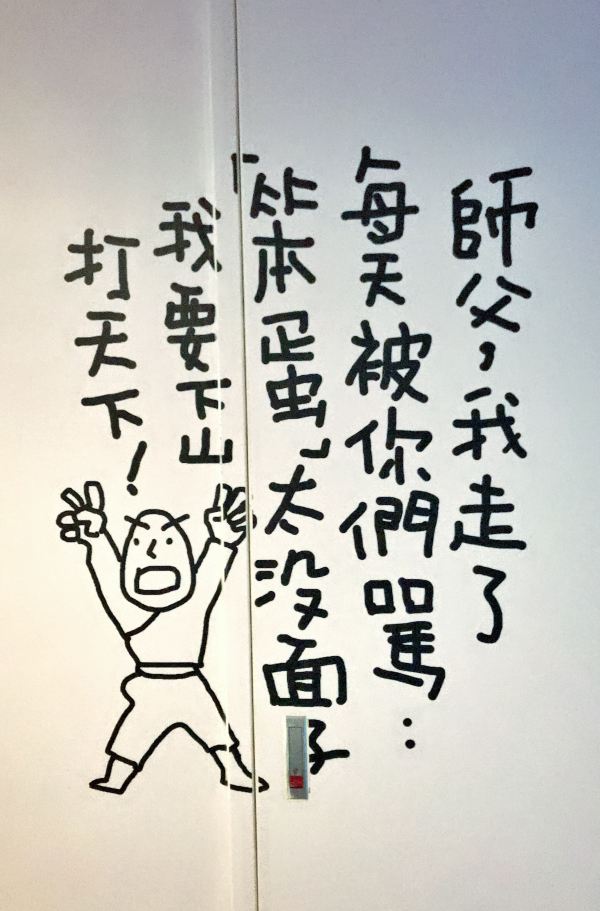 師父,我走了
每天被你們罵…
「笨蛋」太没面子
我要下山
打天下!